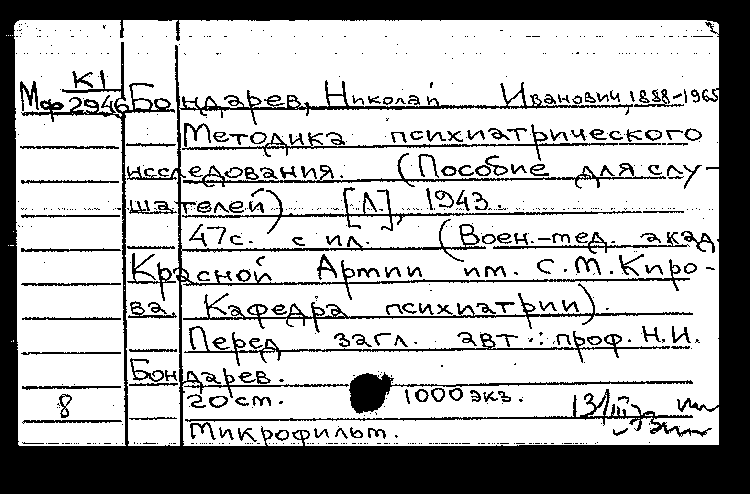 К1
Мф 2946 Бондарев, Николай Иванович, 1888-1965
Методика психиатрического
исследования. (Пособие для слу-
шателей). [Л], 1943.
47с. с ил. (Воен.-мед. акад.
Красной Армии им. С.М.Киро-
ва. Кафедра психиатрии).
Перед загл. авт.: проф. Н.И.
Бондарев.
8 20 см. 1000 экз.
Микрофильм.